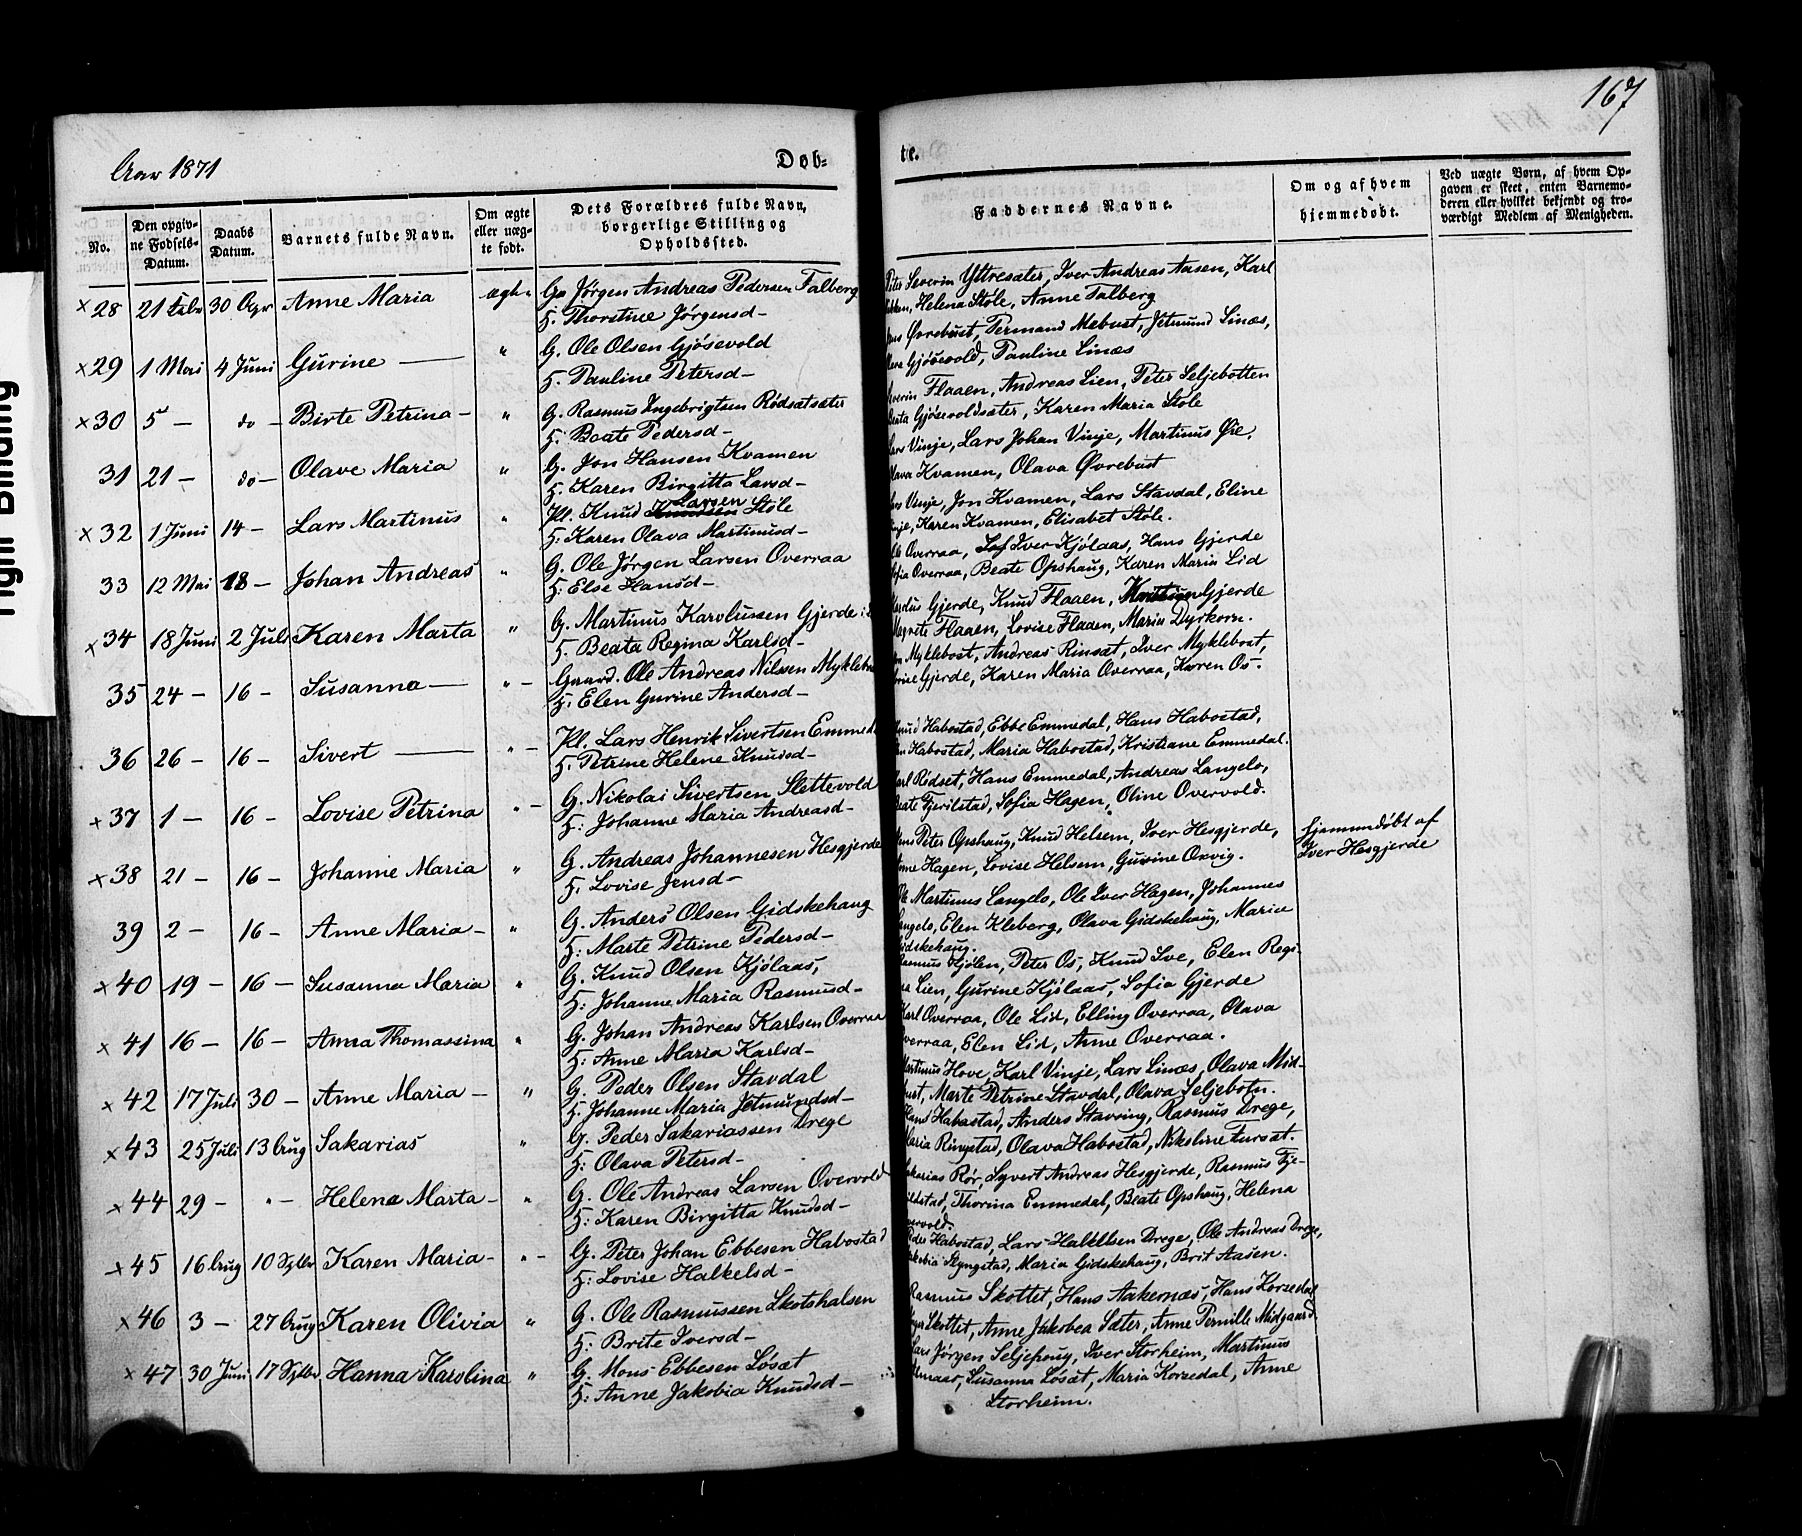 167
Aar 1871
Døb-
te.
No.
Den opgiv-
ne Fødsels-
Datum.
Daabs
Datum.
Barnets fulde Navn.
Om ægte
eller uæg-
te født.
Dets Forældres fulde Navn,
borgerlige Stilling og
Opholdssted.
Faddernes Navne.
Om og af hvem
hjemmedøbt.
Ved uægte Børn, af hvem Op-
gaven er skeet, enten Barnemo-
deren eller hvilket bekjendt og tro-
værdigt Medlem af Menigheden.
× 28 21 Febr 30 Apr Anne Maria ægte Gm Jørgen Andreas Pedersen Falberg
H. Thorstine Jørgensd-
Peter Severin Yttresæter, Iver Andreas Aasen, Karl
Helena Støle, Anne Falberg
× 29 1 Mai 4 Juni Gurine — " G. Ole Olsen Gjøsevold
H. Pauline Petersd-
Øvrebust, Permand Mebust, Jetmund Linæs,
Gjøsevold, Pauline Linæs
× 30 5 — do — Birte Petrina — " G. Rasmus Ingebrigtsen Rødsætsæter
H. Beate Pedersd-
Flaaen, Andreas Lien, Peter Seljebotten
Gjøsevoldsæter, Karen Maria Støle
31 21 — do — Olave Maria " G. Jon Hansen Kvamen
H. Karen Birgitta Larsd-
Lars Vinje, Lars Johan Vinje, Martinus Øie,
Kvamen, Olava Øvrebust
× 32 1 Juni 14 — Lars Martinus " Kl. Knud Larsen Støle
H. Karen Olava Martinusd-
Vinje, Jon Kvamen, Lars Stavdal, Eline
Vinje, Karen Kvamen, Elisabet Støle.
33 12 Mai 18 — Johan Andreas " G. Ole Jørgen Larsen Overraa
H: Else Hansd-
Overraa, Iver Kjølaas, Hans Gjerde
Sofia Overraa, Beate Opshaug, Karen Maria Lid
× 34 18 Juni 2 Juli Karen Marta " G. Martinus Karolussen Gjerde
H. Beata Regina Karlsd-
Gjerde, Knud Flaaen, Kristian Gjerde
Flaaen, Lovise Flaaen, Maria Dyrkorn.
35 24 — 16 — Susanna — " — Gaard. Ole Andreas Nilsen
H. Elen Gurine Andersd-
Myklebost, Andreas Rinsæt, Iver Myklebost,
Gjerde, Karen Maria Overraa, Karen Os-
36 26 — 16 — Sivert — " — Kl. Lars Henrik Sivertsen
H. Petrine Helene Knudsd-
Knud Habostad, Ebbe Emmedal, Hans Habostad,
Habostad, Maria Habostad, Kristiane Emmedal.
× 37 1 — 16 — Lovise Petrina " — G. Nikolai Sivertsen Slettevold
H: Johanne Maria Andreasd-
Karl Ridset, Hans Emmedal, Andreas Langelo,
Beate Fjerilstad, Sofia Hagen, Oline Overvold.
× 38 21 — 16 — Johanne Maria " G. Andreas Johannesen Hesgjerde
H. Lovise Jensd-
Peter Opshaug, Knud Helsem, Iver Hesgjerde,
Hagen, Lovise Helsem, Gurine Orvig.
Hjemmedøbt af
Iver Hesgjerde
39 2 — 16 — Anne Maria — " G. Anders Olsen Gidskehaug
H: Marte Petrine Pedersd-
Ole Martinus Langelo, Ole Iver Hagen, Johannes
Langelo, Elen Kleberg, Olava Gidskehaug, Maria
Gidskehaug.
× 40 19 — 16 — Susanna Maria " G. Knud Olsen Kjølaas,
H: Johanne Maria Rasmusd-
Rasmus Hjølen, Peter Os, Knud Ive, Elen Regi-
na Lien, Gurine Kjølaas, Sofia Gjerde
× 41 16 — 16 — Anna Thomassina " G. Johan Andreas Karlsen Overraa
H: Anne Maria Karlsd-
Karl Overraa, Ole Lid, Elling Overraa, Olava
Overraa, Elen Lid, Anne Overraa.
× 42 17 Juli 30 — Anne Maria — " G. Peder Olsen Stavdal
H: Johanne Maria Jetmundsd-
Martinus Hove, Karl Vinje, Lars Linæs, Olava Mid-
Marte Petrine Stavdal, Olava Seljebotn.
× 43 25 Juli 13 Aug Sakarias " G. Peder Sakariassen Drege
H: Olava Petersd-
Hans Habostad, Anders Stavring, Rasmus Drege,
Maria Ringstad, Olava Habostad, Nikoline Fursæt.
× 44 29 — " — Helena Marta — " G. Ole Andreas Larsen Overvold
H: Karen Birgitta Knudsd-
Sakarias Rør, Syvert Andreas Hesgjerde, Rasmus Fje-
rildstad, Thorina Emmedal, Beate Opshaug, Helena
Overvold.
× 45 16 Aug 10 Sptbr Karen Maria — " — G. Peter Johan Ebbesen Habostad
H: Lovise Halkelsd-
Peder Habostad, Lars Halkelsen Drege, Ole Andreas Drege,
Jakobia Slyngstad, Maria Gidskehaug, Brit Aasen.
× 46 3 — 27 Aug Karen Olivia " G. Ole Rasmussen Skotshalsen
H: Brite Iversd-
Rasmus Skottet, Hans Aakernæs, Hans Korsedal
Skottet, Anne Jakobea Sæter, Anne Pernille Midgaard.
× 47 30 Juni 17 Sptbr Hanna Karolina " G. Mons Ebbesen Løsæt
H: Anne Jakobia Knudsd-
Lars Jørgen Seljehaug, Iver Storheim, Martinus
Susanna Løsæt, Maria Korsedal, Anne
Storheim.
Tight Binding